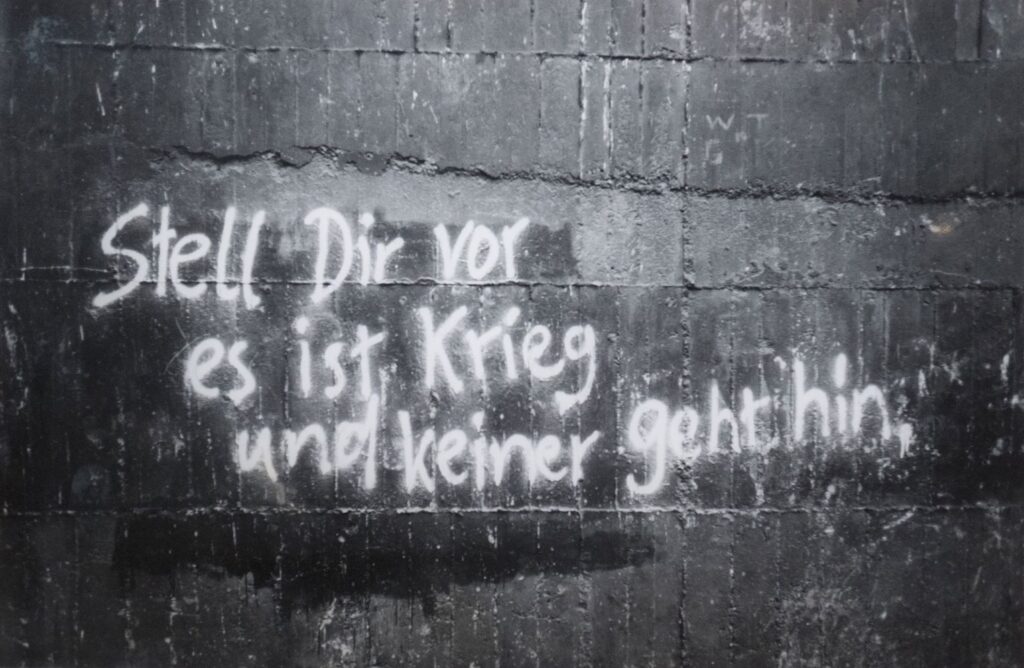 W T
Stell Dir vor
es ist Krieg
und keiner geht hin,